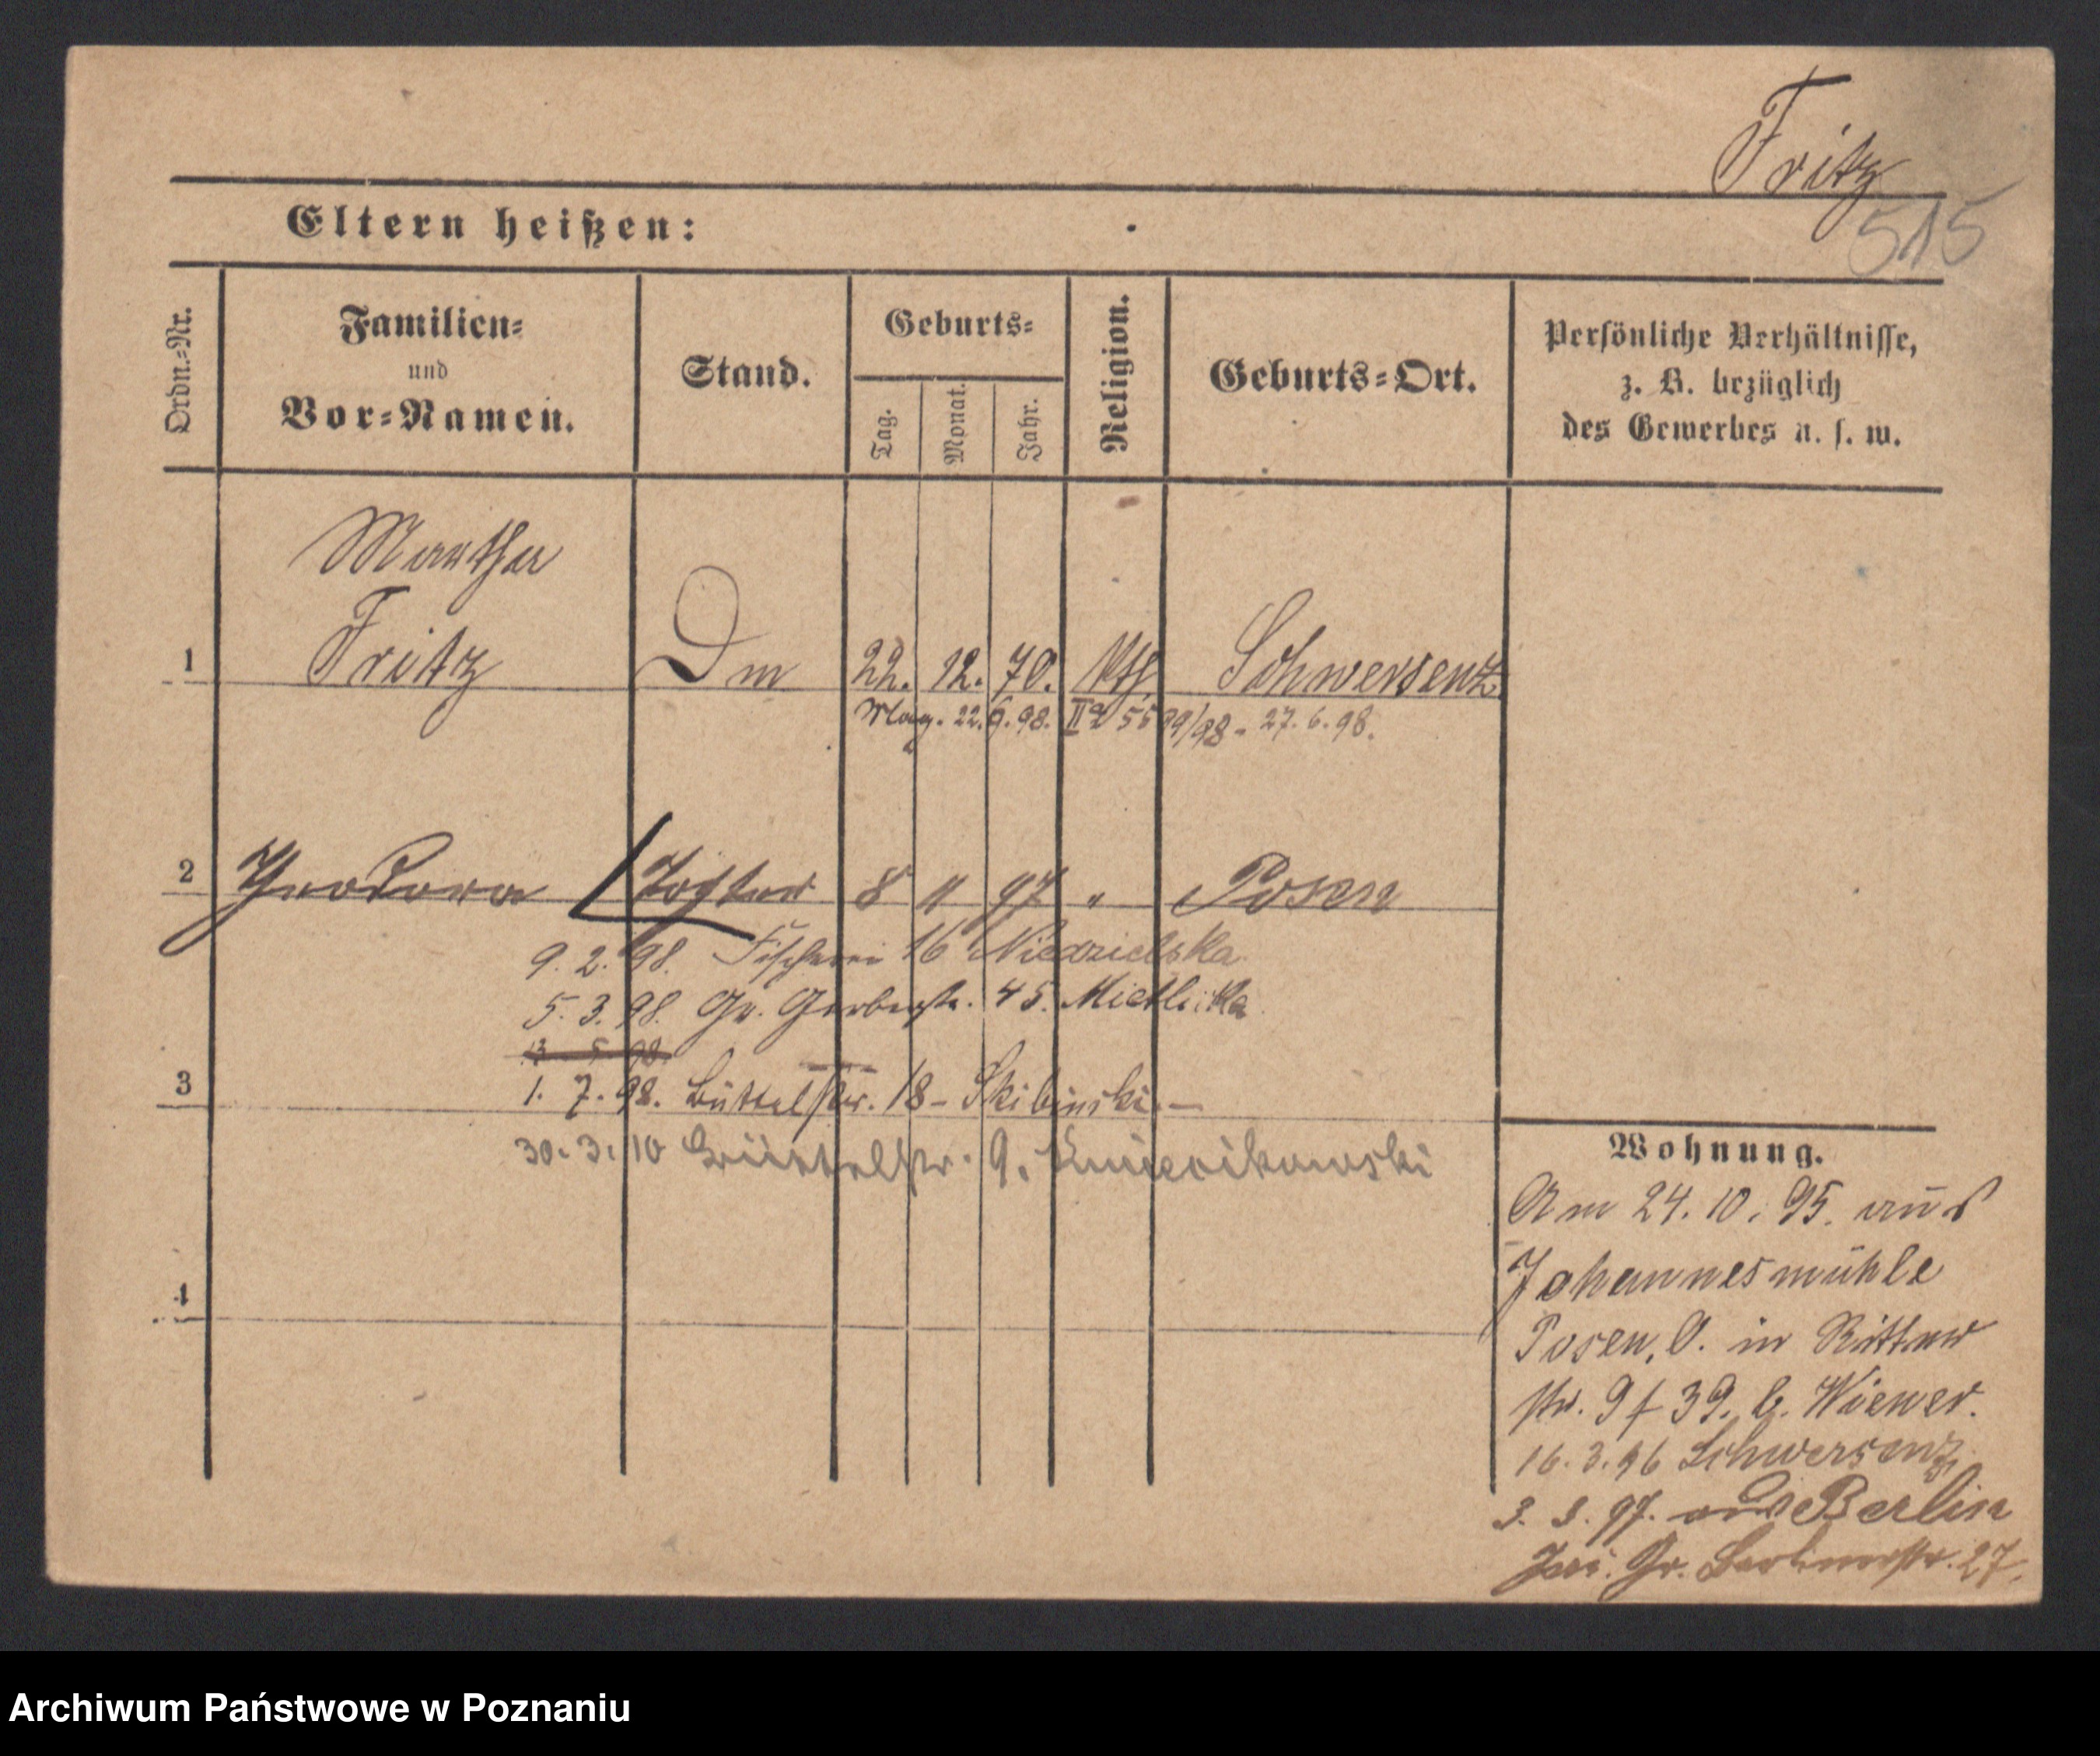 Fritz
515
Eltern heißen:
Ordn.-Nr.
Familien-
und
Vor-Namen.
Stand.
Geburts-
Tag.
Monat.
Jahr.
Religion.
Geburts-Ort.
Persönliche Verhältnisse,
z. B. bezüglich
des Gewerbes u. s. w.
Martha
1 Fritz Dm 22. 12. 70. kth. Schwersenz
Mag. 22. 6. 98. 99/98 - 27. 6. 98.
2 Theodora Tochter 8 11 97 " Posen
9. 2. 98. Fischerei 16 Niedzielska
5. 3. 98. Gr. Gerberstr. 45. Mietlicka
5 98.
3 1. 7. 98. Büttelstr. 18 - Skibinski. -
30. 3. 10 9.
Wohnung.
4
Am 24. 10. 95. aus
Johannesmühle
Posen, O. in Ritter
str. 9/39. b. Wiener.
16. 3. 96 Schwersenz
3. 3. 97. aus Berlin
Gr. Berlinerstr. 27.
Archiwum Państwowe w Poznaniu